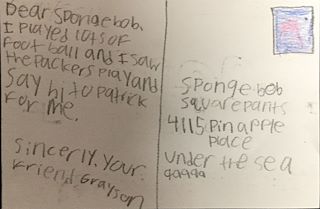 Dear Spongebob.
I played lots of
football and I saw
the Packers play and
say hi to Patrick
For me.
Sincerly. Your.
Friend Grayson
Sponge bob
Square pants
4115 Pinapple
Place
Under the sea
99999